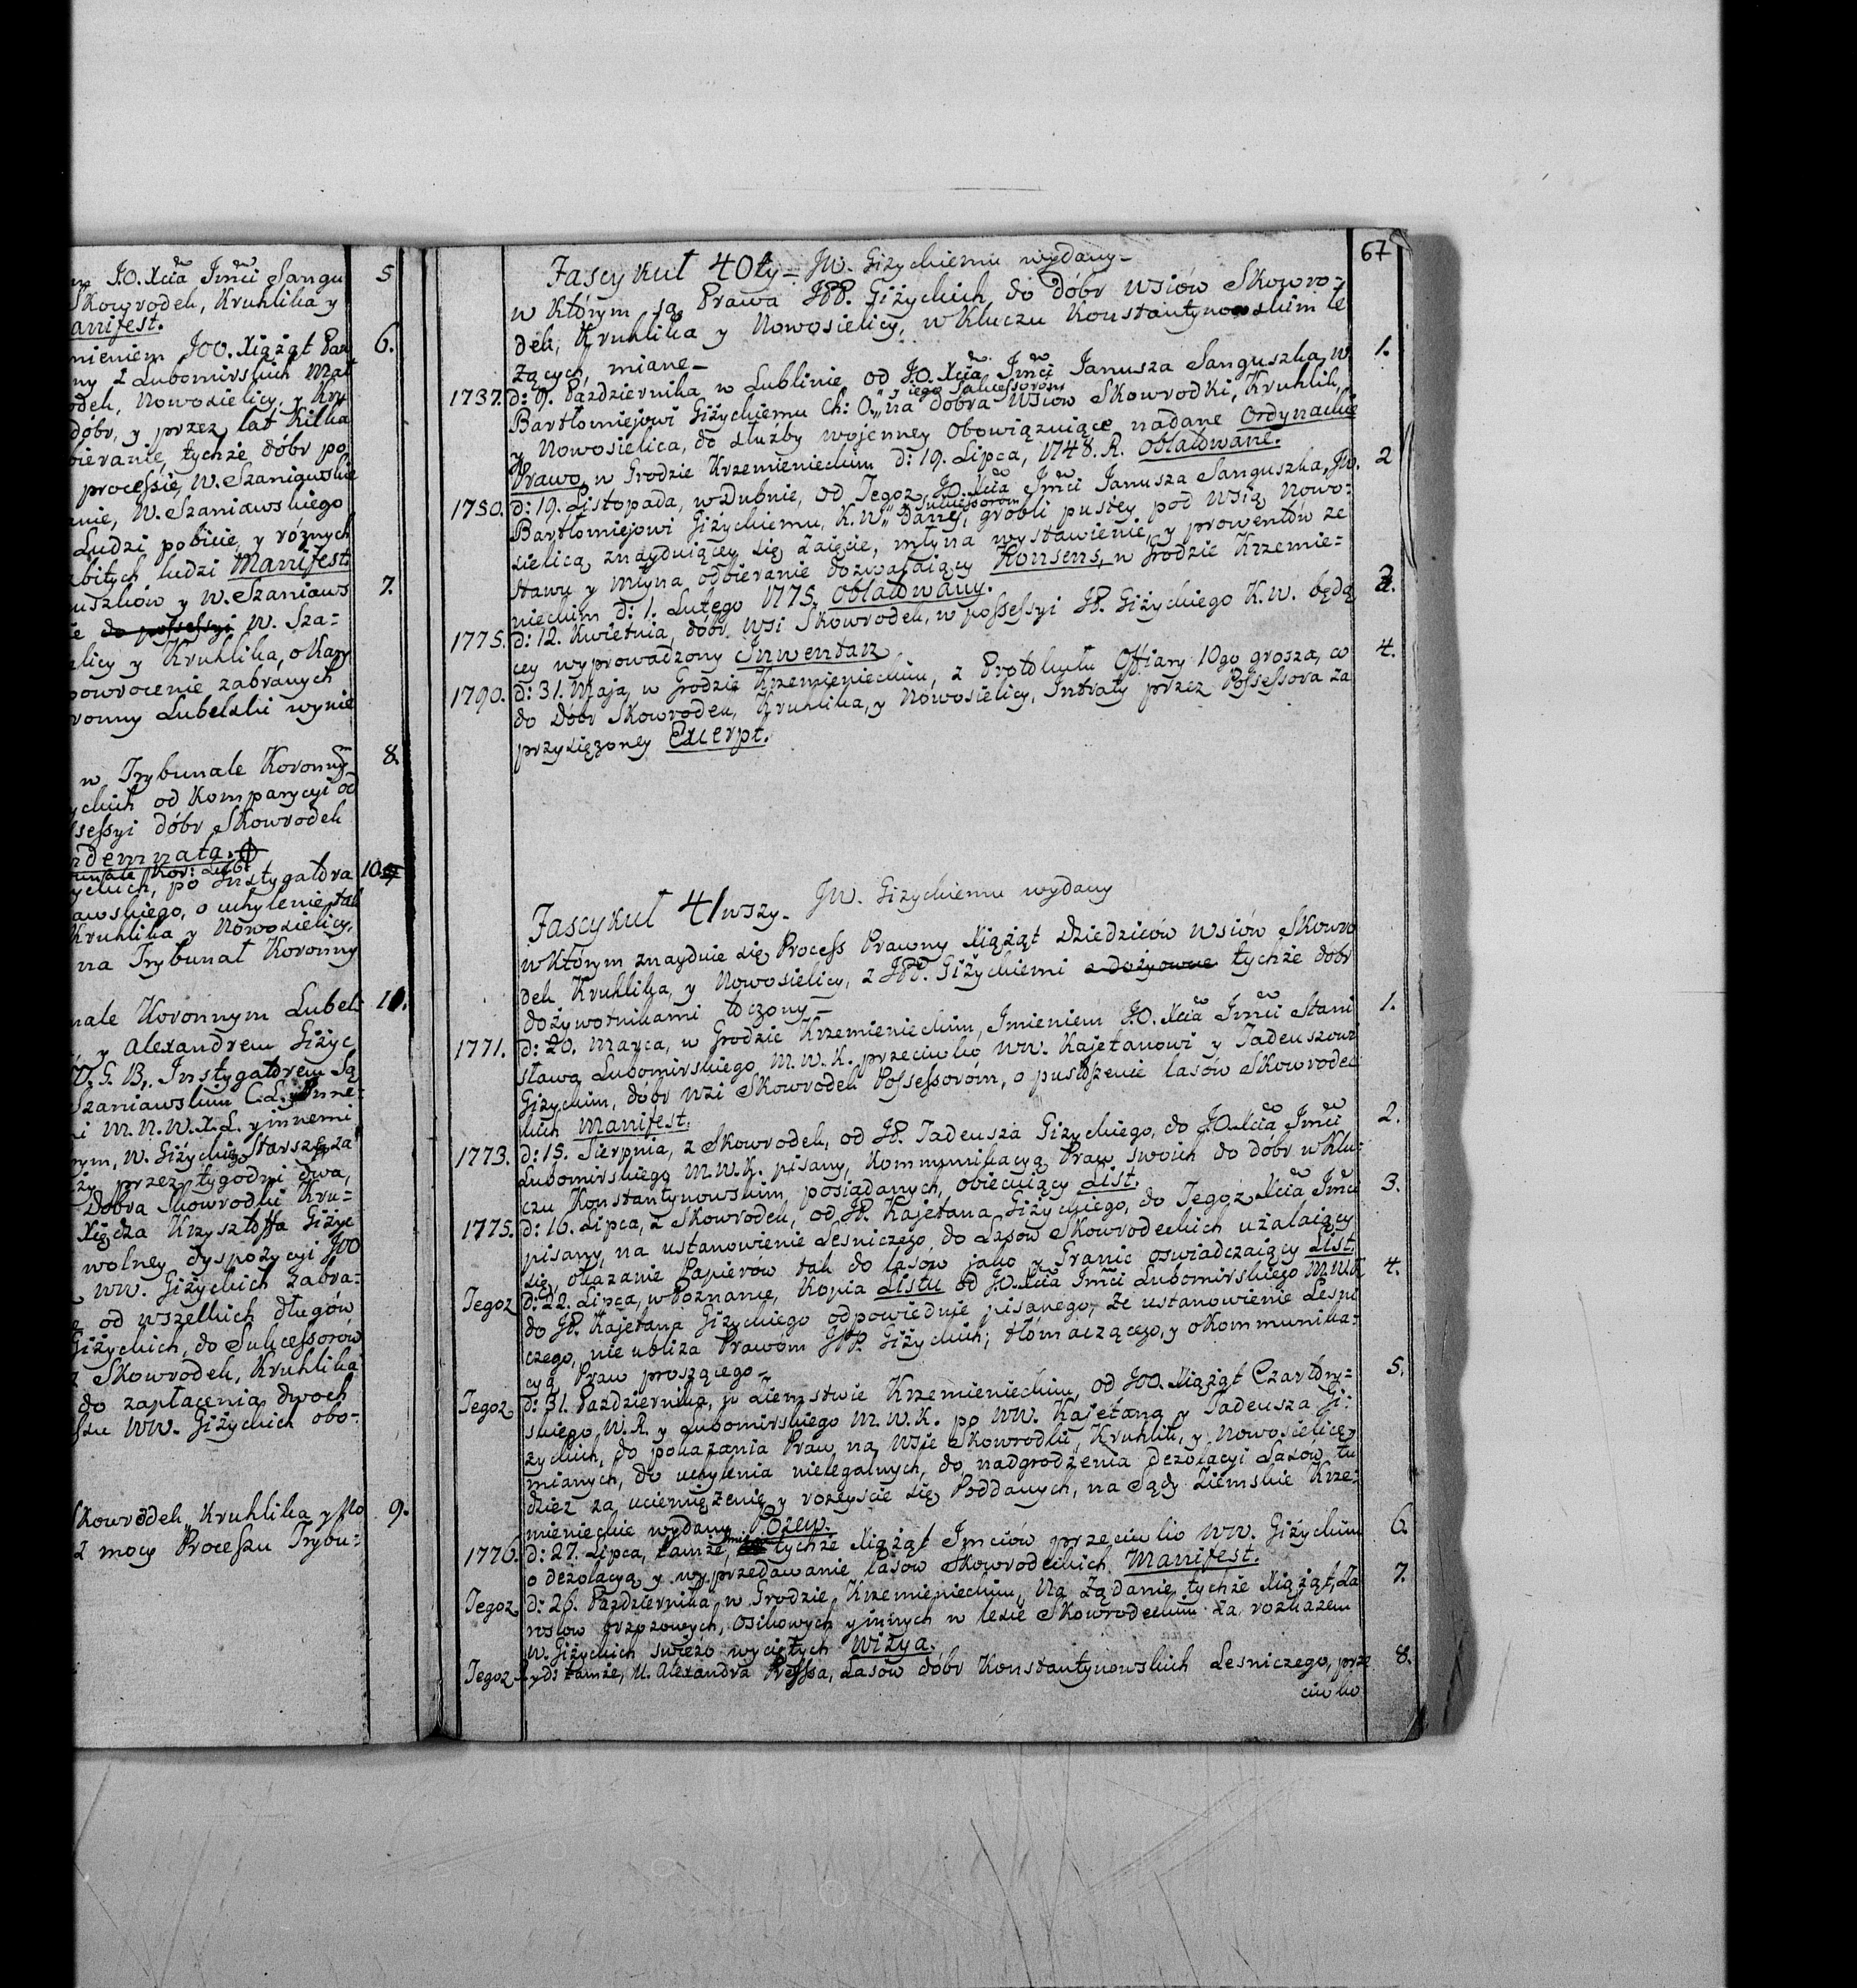 m J.O. Xcia Jmci Sangu
Skowrodek, Kruhlika y
anifest.
mieniem JOO. Xiążąt Par
ny z Lubomirskich Mał
odek, Nowosielicy, y Kru
dóbr, y przez lat kilka
bieranie, tychże dóbr po
processie, W. Szaniawskie
anie, W. Szaniawskiego
Ludzi pobicie, y różnych
abitych ludzi Manifest
uszków y W. Szaniaws
ie do possessyi W. Sza-
licy y Kruhlika, o kary
powrocenie zabranych
ronny Lubelski wynie
w Trybunale Koronny
ychich od Komparycyi od
ssessyi dóbr Skowrodek
ndemnata.
unale Kor: Lub:
ychich, po Instygatora
awskiego, o uchylenie
Kruhlika y Nowosielicy,
na Trybunał Koronny
nale Koronnym Lubel:
y Alexandrem Giżyc
G. B. Instygatorem Są
Szaniawskim C. L. y Inne:
i M. N. W. X. L. y innemi
nym, W. Giżyckiego Starszą za
zy przez tygodni dwa,
Dobra Skowrodki Kru-
Xiędza Krzysztoffa Giżyc
wolney dyspozycyi JOO
WW. Giżyckich zabra-
od wszelkich długów
Giżyckich, do Sukcessorów
z Skowrodek, Kruhlika
do zapłacenia dwoch
su WW. Giżyckich obo-
Skowrodek, Kruhlika y No
z mocy Processu Trybu-
5
6.
7.
8.
10
11.
9.
67
Fascykuł 40ty- JW. Giżyckiemu wydany-
w którym są Prawa JPP. Giżyckich do dóbr Wsiow Skowro-
dek, Kruhlika y Nowosielicy, w Kluczu Konstantynowskim le
żących, miane-
1737. d: 9. Października w Lublinie od J.O. Xcia Jmci Janusza Sanguszka, W. 1.
y iego Sukcessorom
Bartłomiejowi Giżyckiemu Ch: O. na dobra Wsiow Skowrodki, Kruhlik,
y Nowosielica, do służby wojenney obowiązuiące nadane Ordynackie
Prawo, w Grodzie Krzemienieckim d: 19. Lipca, 1748. R. oblatowane.
1750. d: 19. Listopada, w Dubnie, od Tegoz J.O. Xcia Jmci Janusza Sanguszka, JW. 2
y Sukcessorom
Bartłomiejowi Giżyckiemu, K.W. dany, grobli pustey pod Wsią Nowo-
sielicą znayduiącey się zaięcie, młyna wystawienie, y prowentów ze
stawu y młyna odbieranie dozwalaiący Konsens, w Grodzie Krzemie-
nieckim d: 1. Lutego 1775. oblatowany.
1775. d: 12. Kwietnia, dóbr Wsi Skowrodek, w possessyi JP. Giżyckiego K.W. będą 3.
cey wyprowadzony Inwentarz.
1790. d: 31. Maja w Grodzie Krzemienieckim, z Protokułu Offiary 10go grosza, co 4.
do Dóbr Skowrodek, Kruhlika, y Nowosielicy, Intraty przez Possessora za
przysiężoney Excerpt.
Fascykuł 41wszy- JW. Giżyckiemu wydany
w którym znayduie się Process Prawny Xiążąt Dziedziców Wsiów Skowro
dek Kruhlika, y Nowosielicy, z JPP. Giżyckiemi tychże dóbr
dożywotnikami toczony-
1771. d: 20. Marca, w Grodzie Krzemienieckim, Imieniem J.O. Xcia Jmci Stani 1.
sława Lubomirskiego M.W.K. przeciwko WW. Kajetanowi y Tadeuszowi
Giżyckim, dóbr Wsi Skowrodek Possessoróm, o pustoszenie lasów Skowrodec
kich Manifest.
1773. d: 15. Sierpnia, z Skowrodek, od JP. Tadeusza Giżyckiego, do J.O. Xcia Jmci 2.
Lubomirskiego M.W.K. pisany, Kommunikacyą Praw swoich do dóbr w Klu-
czu Konstantynowskim, posiadanych, obiecuiący List.
1775. d: 16. Lipca, z Skowrodek, od JP. Kajetana Giżyckiego, do Tegoz Xcia Jmci 3.
pisany, na ustanowienie Lesniczego, do Lasow Skowrodeckich użalaiący
się, y okazanie Papierów tak do lasów jako y Granic oswiadczaiący List.
Tegoz d: 22. Lipca, w Poznanie, Kopia Listu od J.O. Xcia Jmci Lubomirskiego M.W.K. 4.
do JP. Kajetana Giżyckiego odpowiednie pisanego, że ustanowienie Lesni
czego, nie ubliża Prawom JPP. Giżyckich; tłómaczącego, y o Kommunika-
cyą Praw proszącego-
Tegoz d: 31. Października, w Ziemstwie Krzemienieckim, od JOO. Xiążąt Czartory- 5.
skiego, W.R. y Lubomirskiego M.W.K. po WW. Kajetana y Tadeusza Gi-
życkich, do pokazania Praw na Wsie Skowrodki, Kruhlik, y Nowosielicę
mianych, do uchylenia nielegalnych, do nadgrodzenia dezolacyi Lasow tu
dzież za uciemiężenie, y rozeyscie się Poddanych, na Sądy Ziemskie Krze-
mienieckie wydany Pozew.
1776. d: 27. Lipca, tamże, Imieniem tychże Xiążąt Jmciów przeciwko WW. Giżyckim 6.
o dezolacyą y wyprzedawanie lasów Skowrodeckich Manifest.
Tegoz d: 26. Października w Grodzie Krzemienieckim, Na żądanie tychże Xiążąt, Za 7.
rosłow brzozowych, osikowych y innych w lesie Skowrodeckim za rozkazem
W. Giżyckich swieżo wyciętych Wizya.
Tegoz R. y d: tamże, U. Alexandra Pressa, Lasow dóbr Konstantynowskich Lesniczego, prze 8.
ciwko